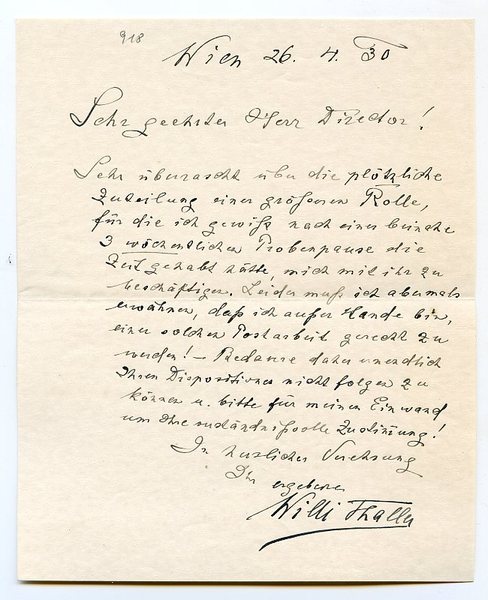 918
Wien 26. 4. 30
Sehr geehrter Herr Director!
Sehr überrascht über die plötzliche
Zuteilung einer größeren Rolle,
für die ich gewiß nach einer beinahe
3 wöchentlichen Probenpause die
Zeit gehabt hätte, mich mit ihr zu
beschäftigen. Leider muß ich abermals
erwähnen, daß ich außer Stande bin,
einer solchen Postarbeit gerecht zu
werden! – Bedaure daher unendlich
Ihren Dispositionen nicht folgen zu
können u. bitte für meinen Einwand
um Ihre verständnißvolle Zustimmung!
In herzlicher Verehrung
Ihr ergebener
Willi Thaller